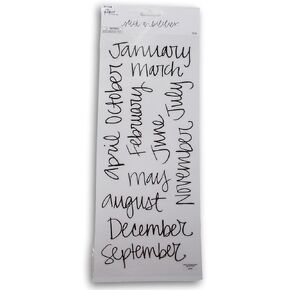 January
March
April
October
February
June
July
November
May
August
December
September